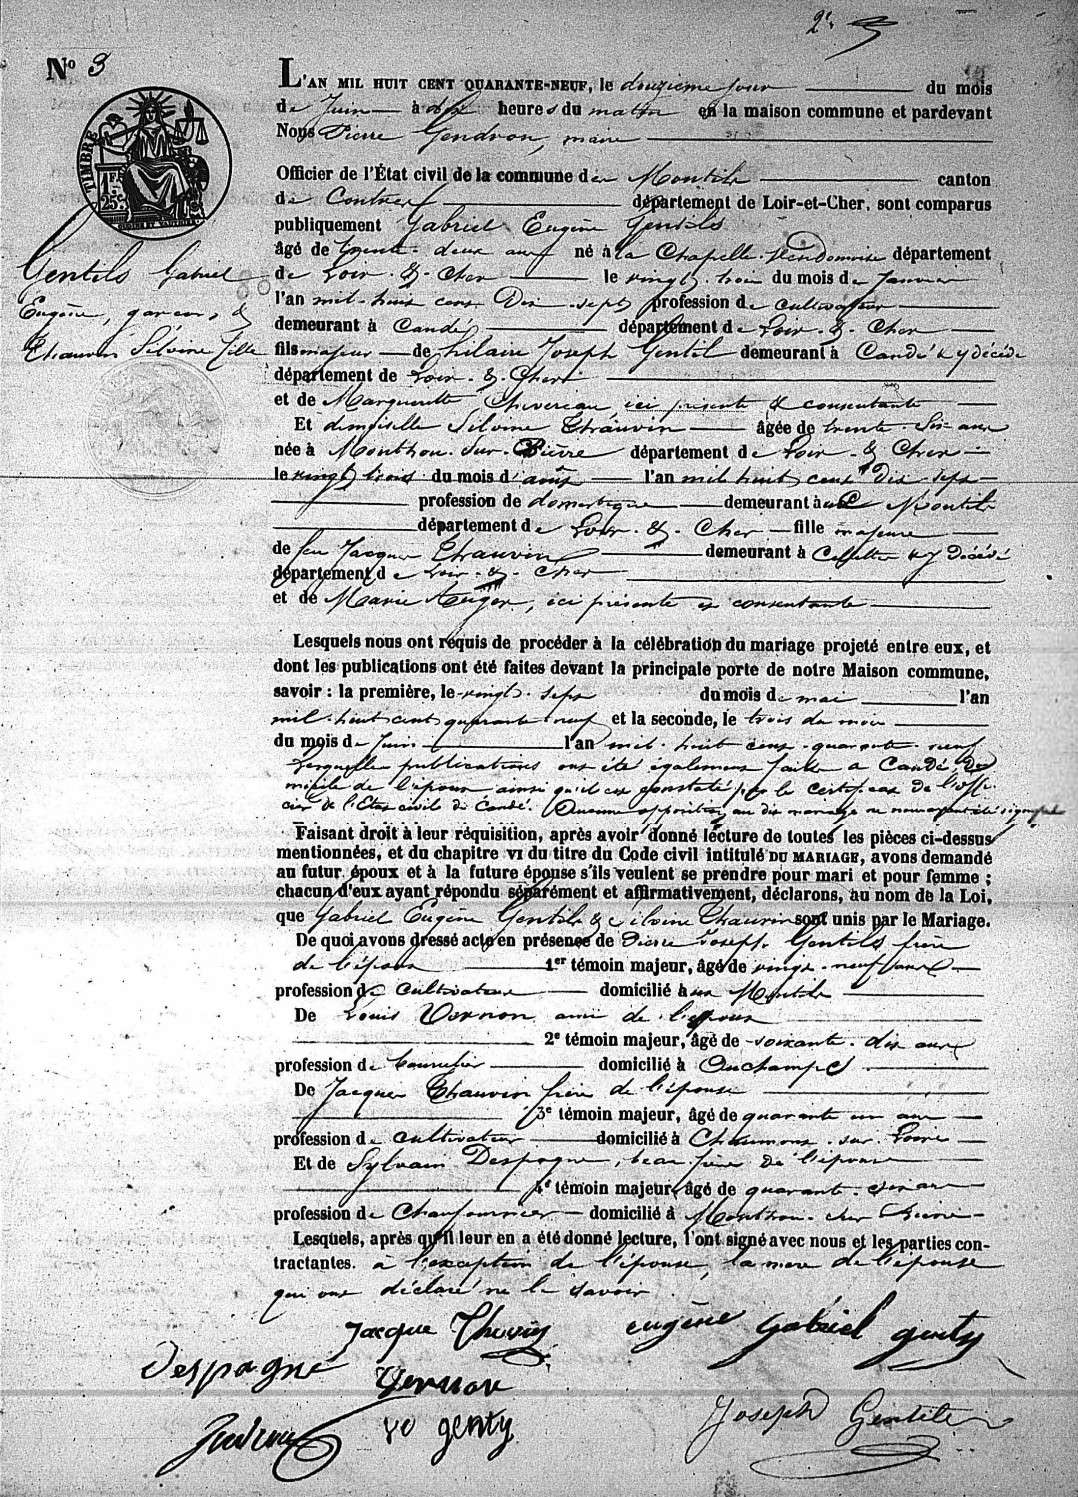 2e
No 3
L'AN MIL HUIT CENT QUARANTE-NEUF, le douzieme jour du mois
de Juin à dix heures du matin en la maison commune et pardevant
Nous Pierre Gendron, maire
TIMBRE
1F.
25c.
Officier de l'État civil de la commune des Montils canton
de Contres département de Loir-et-Cher, sont comparus
publiquement Gabriel Eugène Gentils
âgé de trente-deux ans né à la Chapelle-Vendomoise département
Gentils Gabriel
de Loir-&-Cher le vingt-trois du mois de Janvier
l'an mil-huit cent Dix-sept profession de cultivateur
Eugène, garçon, &
demeurant à Candé département de Loir-&-Cher
Thauvin Silvine fille
fils majeur de hilaire Joseph Gentil demeurant à Candé & y décédé
département de Loir-&-Cher
et de Marguerite Chevereau, ici présente & consentante
Et demoiselle Silvine Thauvin âgée de trente-six ans
née à Monthou-sur-Bièvre département de Loir-&-Cher
le vingt trois du mois d'août l'an mil huit cent dix-sept
profession de domestique demeurant aux Montils
département de Loir-&-Cher fille majeure
de feu Jacques Thauvin demeurant à Cellettes & y Décédé
département de Loir-&-Cher
et de Marie Auger, ici présente et consentante
Lesquels nous ont requis de procéder à la célébration du mariage projeté entre eux, et
dont les publications ont été faites devant la principale porte de notre Maison commune,
savoir : la première, le vingt-sept du mois de mai l'an
mil-huit cent quarante neuf et la seconde, le trois du mois
du mois de Juin l'an mil-huit cent-quarante-neuf
Lesquelles publications ont été également faites a Candé, Do
micile de l'époux ainsi qu'il est constaté par le certificat de l'offi
cier de l'Etat civil de Candé. Aucune opposition au dit mariage ne nous ayant été signifiée
Faisant droit à leur réquisition, après avoir donné lecture de toutes les pièces ci-dessus
mentionnées, et du chapitre VI du titre du Code civil intitulé DU MARIAGE, avons demandé
au futur époux et à la future épouse s'ils veulent se prendre pour mari et pour femme ;
chacun d'eux ayant répondu séparément et affirmativement, déclarons, au nom de la Loi,
que Gabriel Eugène Gentils & Silvine Thauvin sont unis par le Mariage.
De quoi avons dressé acte en présence de Pierre Joseph Gentils frère
de l'époux 1er témoin majeur, âgé de vingt-neuf ans
profession de cultivateur domicilié aux Montils
De Louis Vernon ami de l'époux
2e témoin majeur, âgé de soixante-dix ans
profession de domicilié à Ouchamps
De Jacques Thauvin frère de l'épouse
3e témoin majeur, âgé de quarante un ans
profession de cultivateur domicilié à Chaumont-sur-Loire
Et de Sylvain Despagne, beau frère de l'épouse
4e témoin majeur, âgé de quarante-
profession de Chaufournier domicilié à Monthou-sur-Bièvre
Lesquels, après qu'il leur en a été donné lecture, l'ont signé avec nous et les parties con-
tractantes. à l'exception de l'épouse, la mere de l'épouse
qui ont déclaré ne le savoir.
Jacque Thovin eugène gabriel genty
Despagne Vernon
Gendron ve genty Joseph Gentils